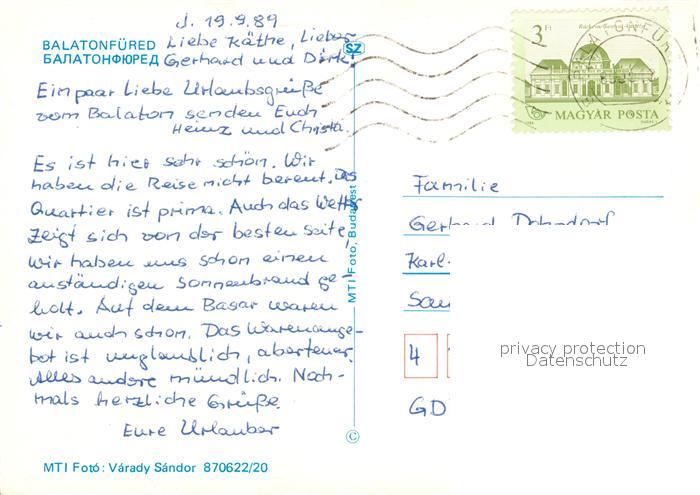 d. 19.9.89
BALATONFÜRED
БАЛАТОНФЮРЕД
Liebe Käthe, Lieber
Gerhard und Dirk.
Ein paar Liebe Urlaubsgrüße
vom Balaton senden Euch
Heinz und Christa.
Es ist hier sehr schön. Wir
haben die Reise nicht bereut. Das
Quartier ist prima. Auch das Wetter
zeigt sich von der besten Seite,
wir haben uns schon einen
anständigen Sonnenbrand ge-
holt. Auf dem Basar waren
wir auch schon. Das Warenange-
bot ist unglaublich, aber teuer.
Alles andere mündlich. Noch-
mals herzliche Grüße.
Eure Urlauber
MTI Fotó: Várady Sándor 870622/20
MTI Fotó, Budapest
©
SZ
3 Ft
MAGYAR POSTA
Familie
Gerhard
Karl-
4
GD
privacy protection
Datenschutz